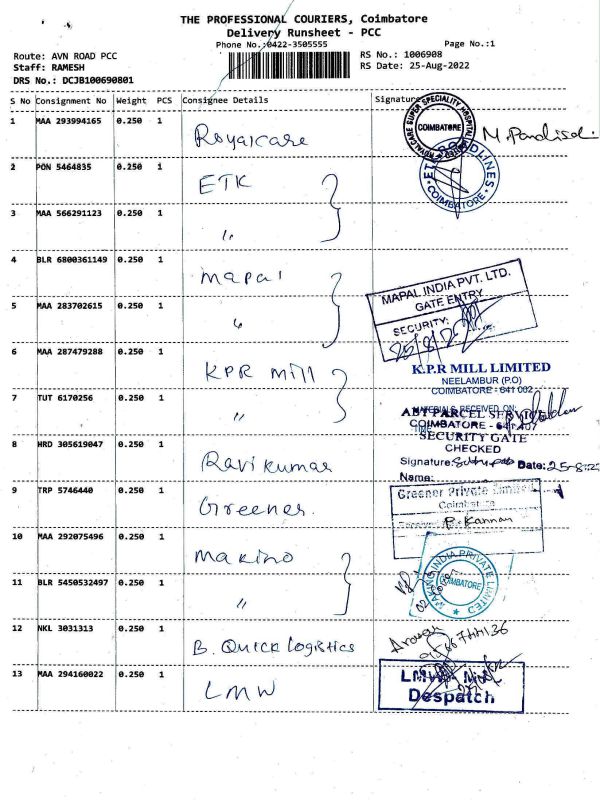 THE PROFESSIONAL COURIERS, Coimbatore
Delivery Runsheet - PCC
Phone No.:0422-3505555
Page No.:1
Route: AVN ROAD PCC
RS No.: 1006908
Staff: RAMESH
RS Date: 25-Aug-2022
DRS No.: DCJB100690801
S No Consignment No Weight PCS Consignee Details Signature
1 MAA 293994165 0.250 1 Royalcare
ROYALCARE SUPER SPECIALITY HOSPITAL LIMITED
COIMBATORE
2 PON 5464835 0.250 1 ETK
COIMBATORE
3 MAA 566291123 0.250 1 "
4 BLR 6800361149 0.250 1 Mapal
MAPAL INDIA PVT. LTD.
GATE ENTRY
SECURITY:
5 MAA 283702615 0.250 1 "
6 MAA 287479288 0.250 1 KPR Mill
K.P.R MILL LIMITED
NEELAMBUR (P.O)
COIMBATORE - 641 062
7 TUT 6170256 0.250 1 "
MATERIALS RECEIVED ON:
TIME
ABT PARCEL SERVICE
COIMBATORE - 641 407
SECURITY GATE
CHECKED
8 HRD 305619047 0.250 1 Ravi Kumar
Signature: Date: 25-8-22
Name:
9 TRP 5746440 0.250 1 Greener
Greener Private Limited
Coimbatore
P. Kannan
10 MAA 292075496 0.250 1 Makino
MAKINO INDIA PRIVATE LIMITED
COIMBATORE
11 BLR 5450532497 0.250 1 "
12 NKL 3031313 0.250 1 B. Quick Logistics
13 MAA 294160022 0.250 1 LMW
LMW
Despatch